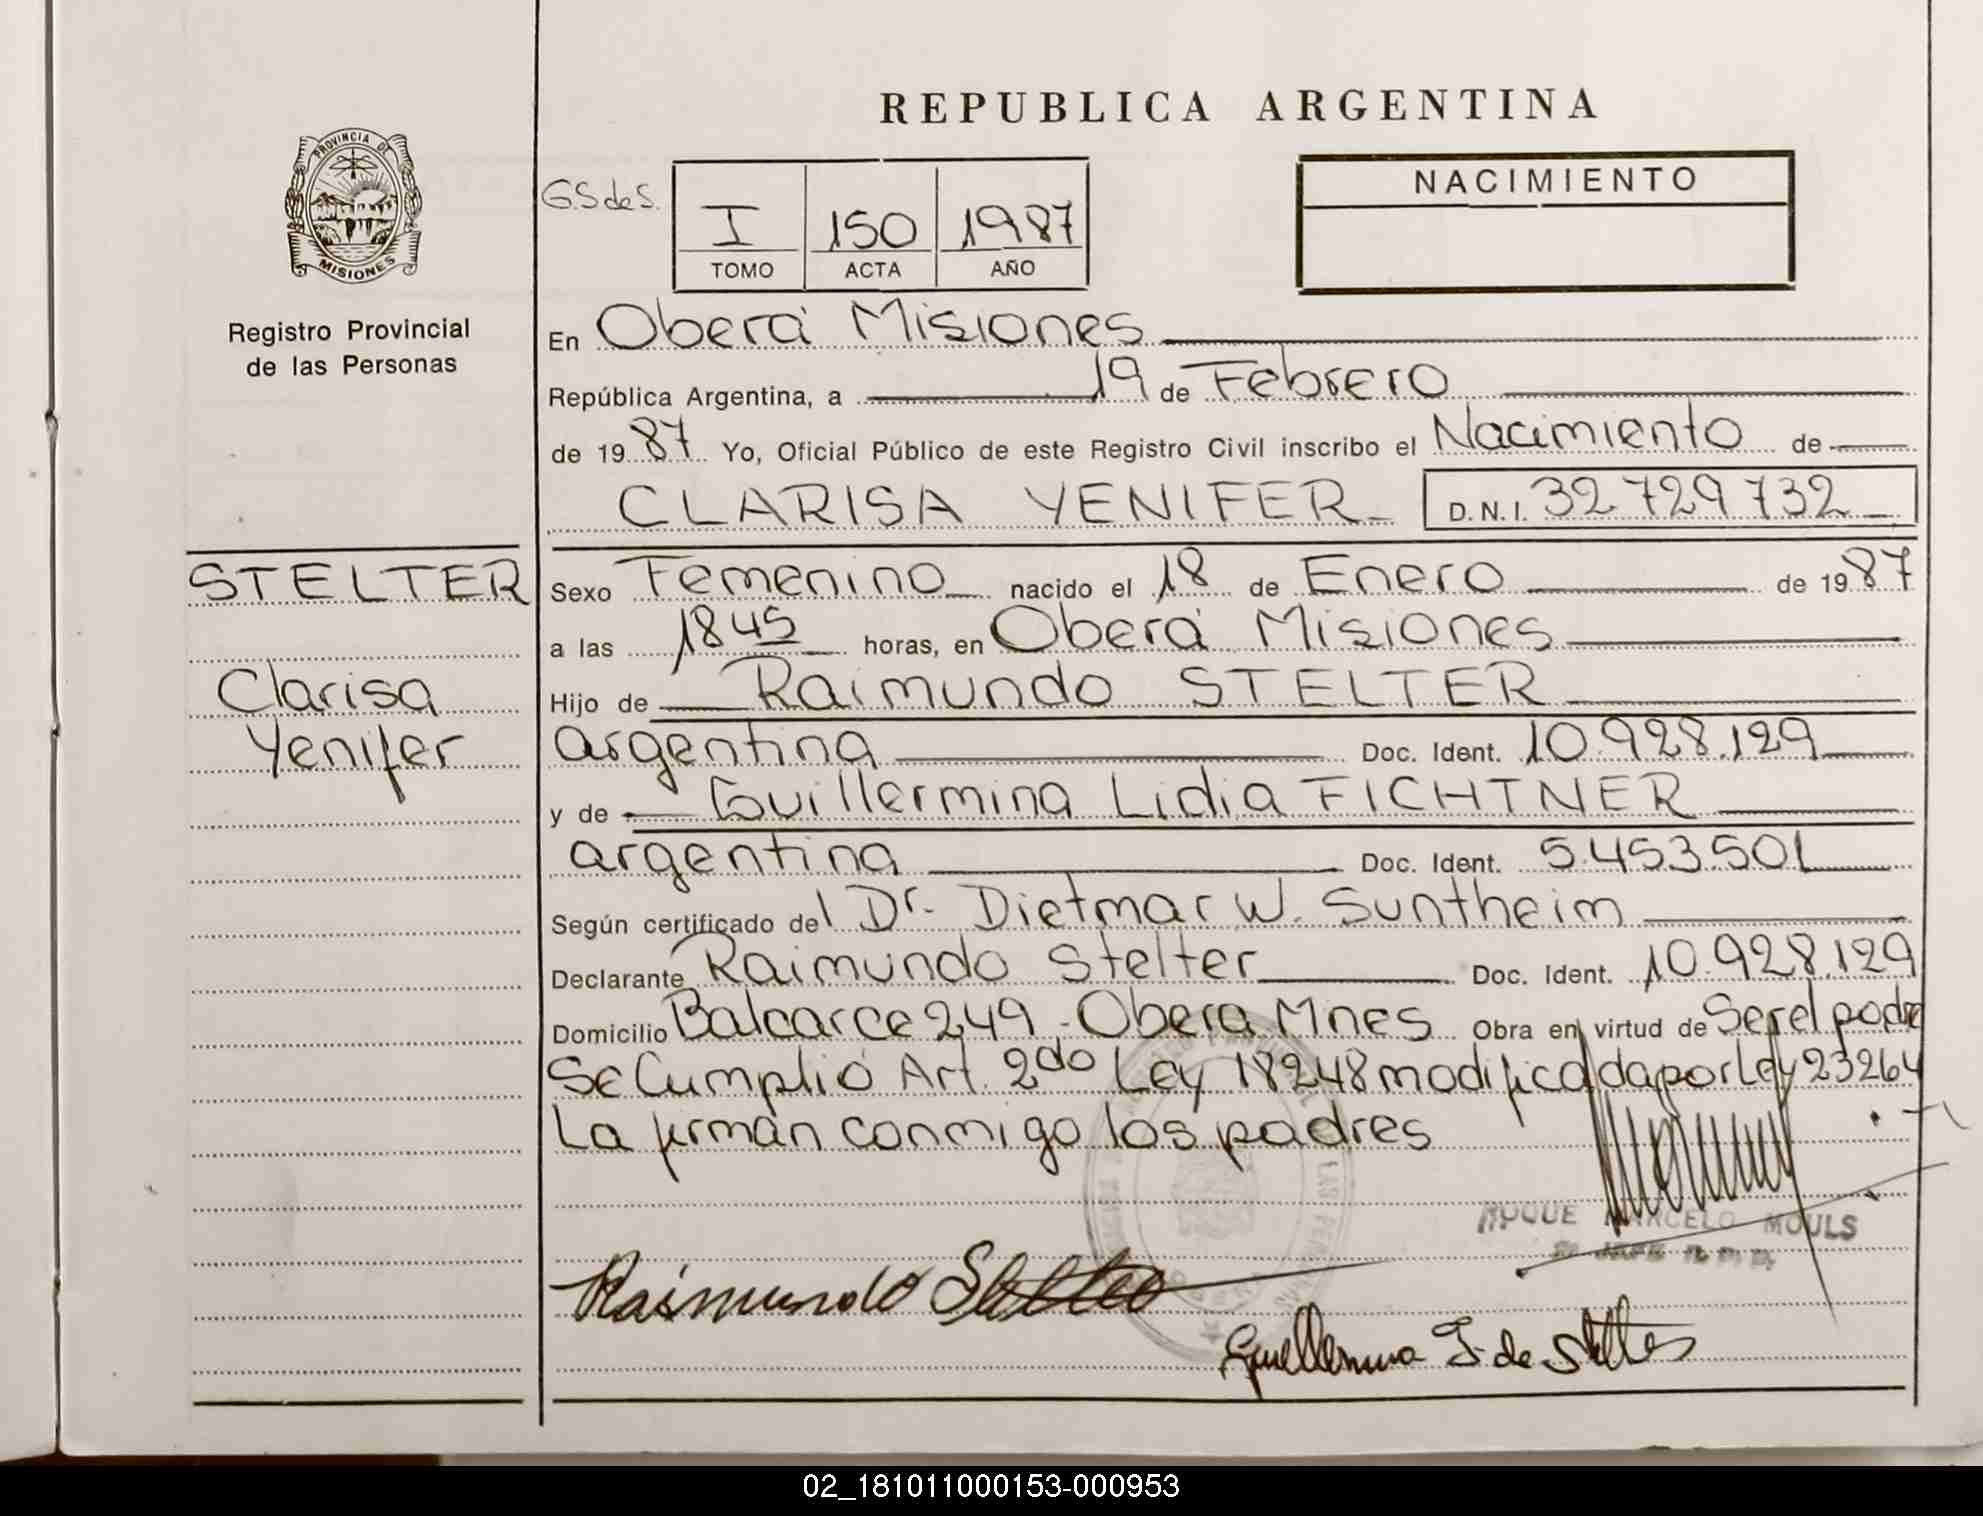 REPUBLICA ARGENTINA
PROVINCIA DE
MISIONES
Registro Provincial
de las Personas
G.S de S.
I 150 1987
TOMO ACTA AÑO
NACIMIENTO
En Oberá Misiones
República Argentina, a 19 de Febrero
de 1987 Yo, Oficial Público de este Registro Civil inscribo el Nacimiento de
CLARISA YENIFER D.N.I. 32 729 732
STELTER
Clarisa
Yenifer
Sexo Femenino nacido el 18 de Enero de 1987
a las 1845 horas, en Oberá Misiones
Hijo de Raimundo STELTER
argentina Doc. Ident. 10.928.129
y de Guillermina Lidia FICHTNER
argentina Doc. Ident. 5.453.501
Según certificado del Dr. Dietmar W. Suntheim
Declarante Raimundo Stelter Doc. Ident. 10.928.129
Domicilio Balcarce 249 - Obera Mnes Obra en virtud de Ser el padre
Se Cumplió Art. 2do Ley 18248 modificada por Ley 23264
La firman conmigo los padres
ROQUE MARCELO MOULS
Raimundo Stelter
Guillermina F. de Stelter
02_181011000153-000953